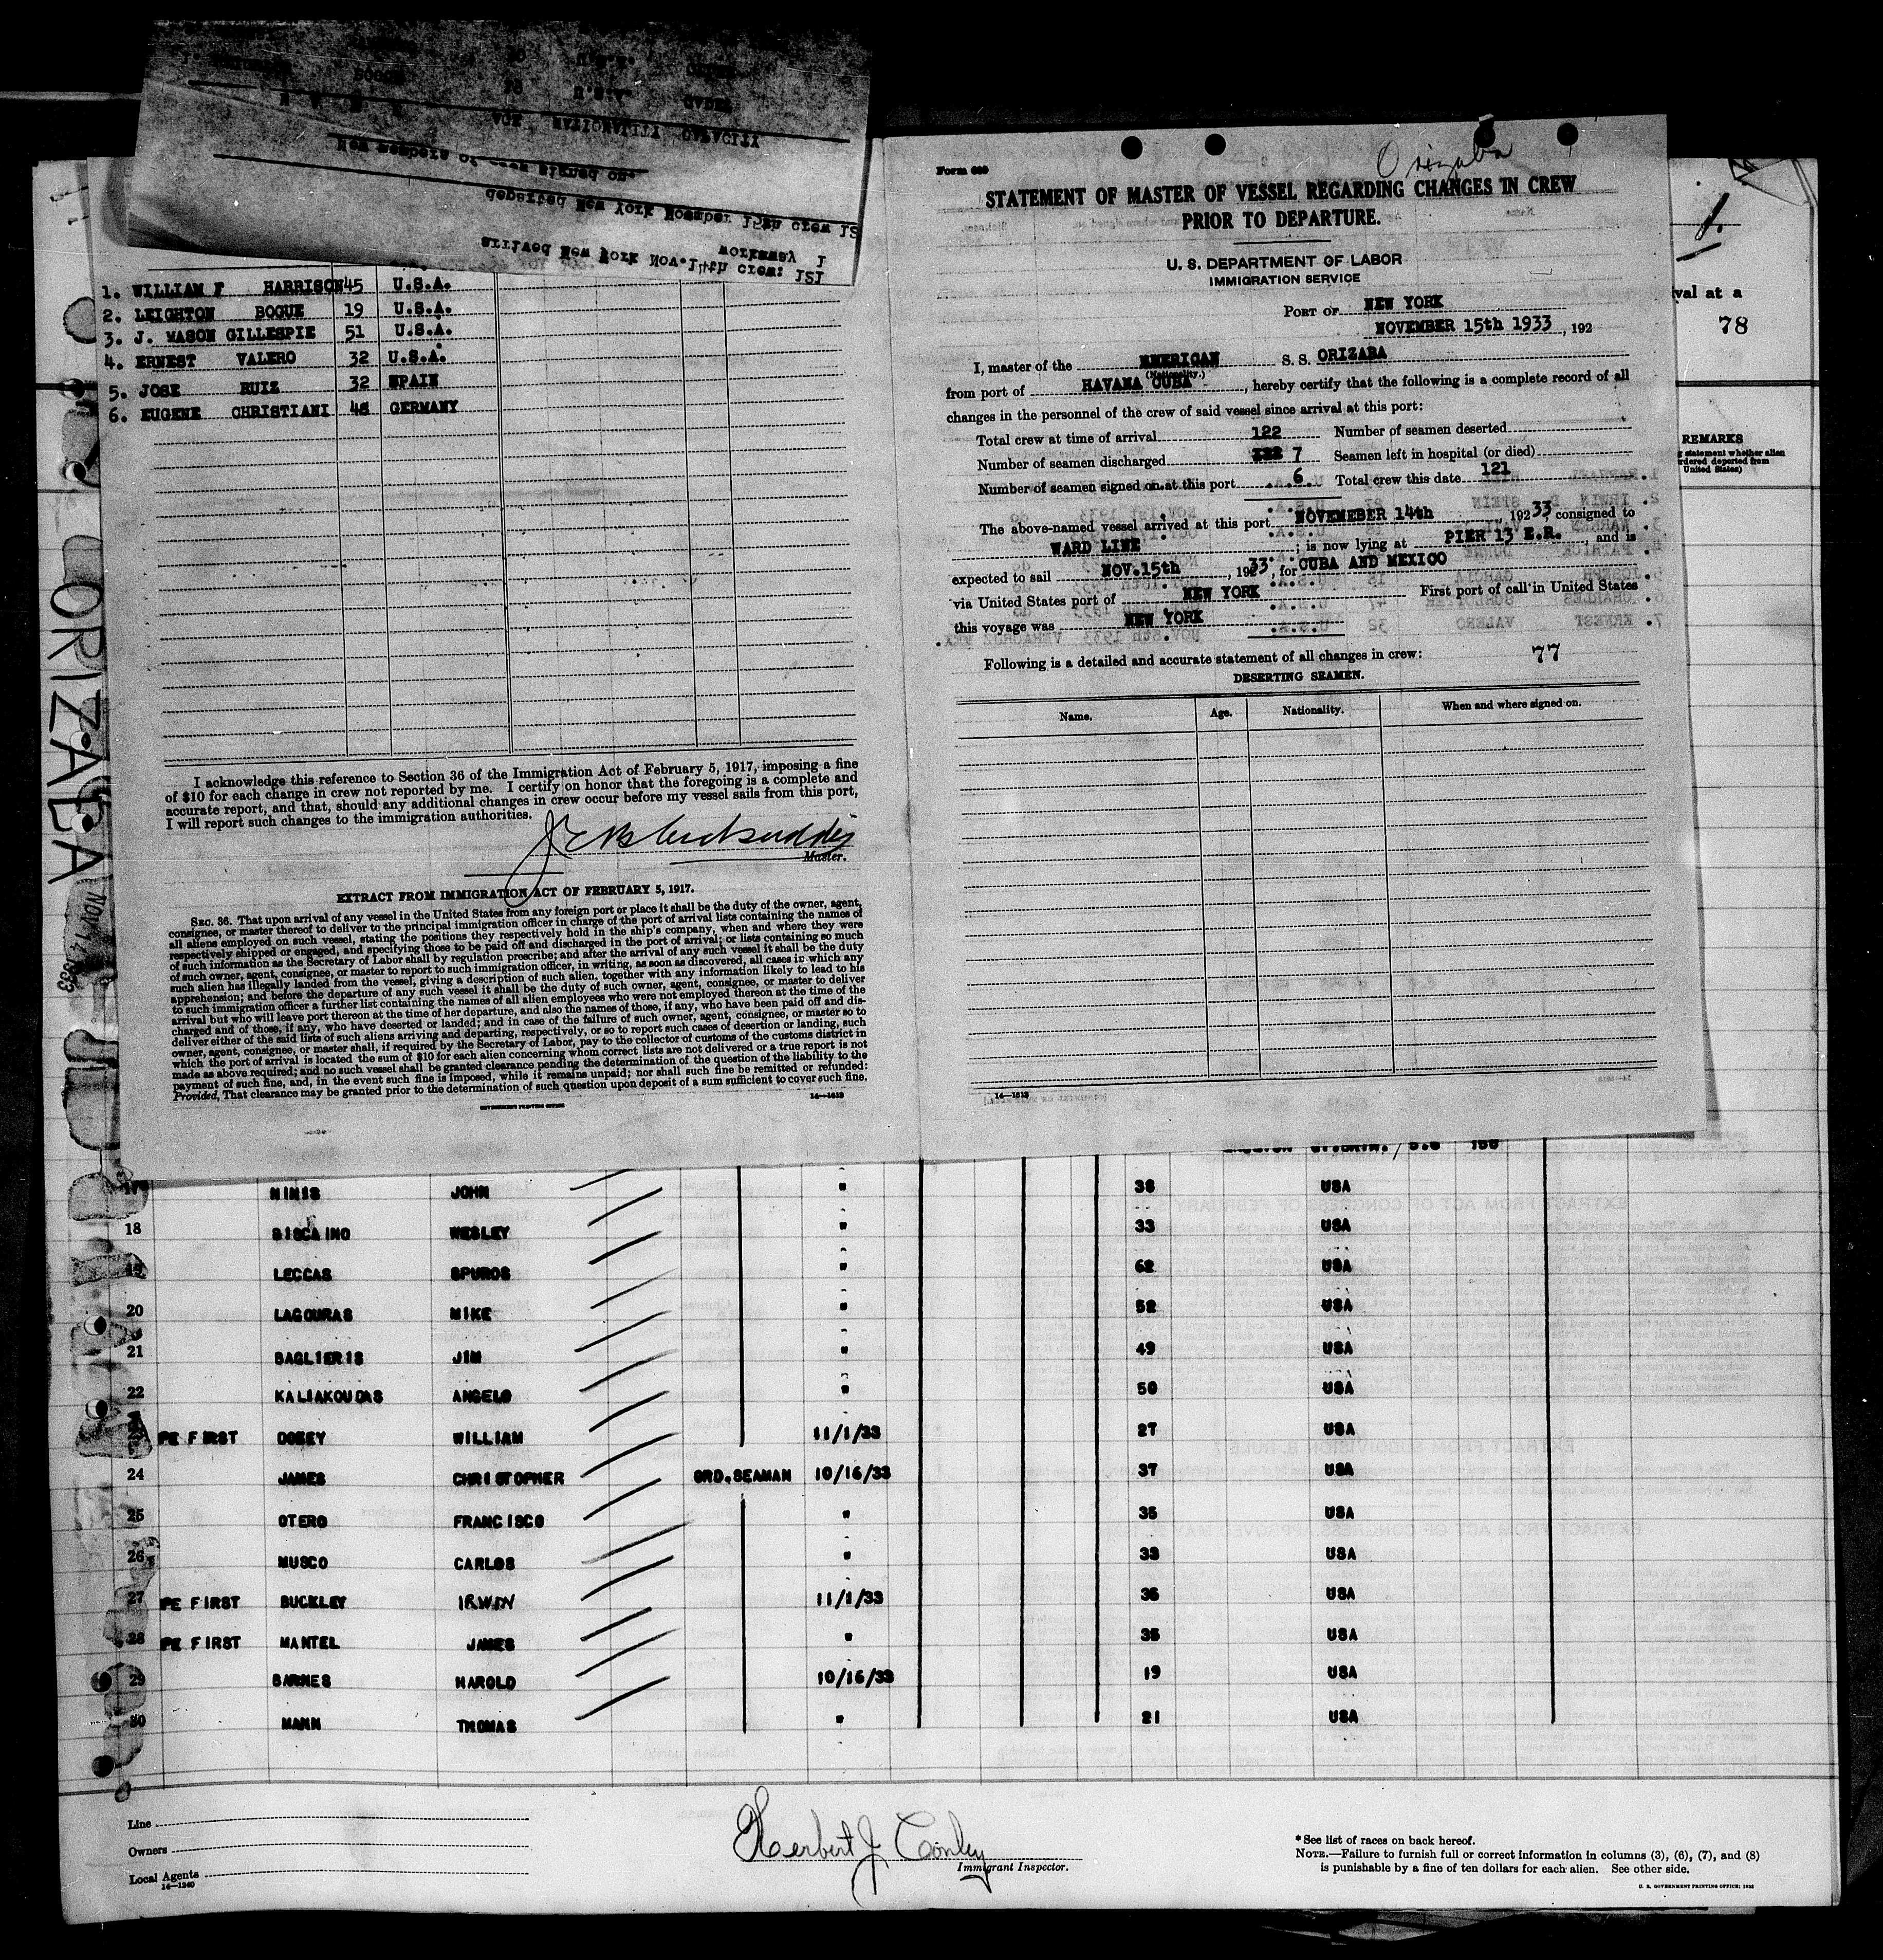 arrived New York Nov.14th crew: 121
workaway 1
departed New York Noember 15th crew 12
New members of crew signed on.
AGE NATIONALITY CAPACITY
1. WILLIAM F HARRISON 45 U.S.A.
2. LEIGHTON BOGUE 19 U.S.A.
3. J. MASON GILLESPIE 51 U.S.A.
4. ERNEST VALERO 32 U.S.A.
5. JOSE RUIZ 32 SPAIN
6. EUGENE CHRISTIANI 48 GERMANY
I acknowledge this reference to Section 36 of the Immigration Act of February 5, 1917, imposing a fine
of $10 for each change in crew not reported by me. I certify on honor that the foregoing is a complete and
accurate report, and that, should any additional changes in crew occur before my vessel sails from this port,
I will report such changes to the immigration authorities.
Master.
EXTRACT FROM IMMIGRATION ACT OF FEBRUARY 5, 1917.
SEC. 36. That upon arrival of any vessel in the United States from any foreign port or place it shall be the duty of the owner, agent,
consignee, or master thereof to deliver to the principal immigration officer in charge of the port of arrival lists containing the names of
all aliens employed on such vessel, stating the positions they respectively hold in the ship's company, when and where they were
respectively shipped or engaged, and specifying those to be paid off and discharged in the port of arrival; or lists containing so much
of such information as the Secretary of Labor shall by regulation prescribe; and after the arrival of any such vessel it shall be the duty
of such owner, agent, consignee, or master to report to such immigration officer, in writing, as soon as discovered, all cases in which any
such alien has illegally landed from the vessel, giving a description of such alien, together with any information likely to lead to his
apprehension; and before the departure of any such vessel it shall be the duty of such owner, agent, consignee, or master to deliver
to such immigration officer a further list containing the names of all alien employees who were not employed thereon at the time of the
arrival but who will leave port thereon at the time of her departure, and also the names of those, if any, who have been paid off and dis-
charged and of those, if any, who have deserted or landed; and in case of the failure of such owner, agent, consignee, or master so to
deliver either of the said lists of such aliens arriving and departing, respectively, or so to report such cases of desertion or landing, such
owner, agent, consignee, or master shall, if required by the Secretary of Labor, pay to the collector of customs of the customs district in
which the port of arrival is located the sum of $10 for each alien concerning whom correct lists are not delivered or a true report is not
made as above required; and no such vessel shall be granted clearance pending the determination of the question of the liability to the
payment of such fine, and, in the event such fine is imposed, while it remains unpaid; nor shall such fine be remitted or refunded:
Provided, That clearance may be granted prior to the determination of such question upon deposit of a sum sufficient to cover such fine.
GOVERNMENT PRINTING OFFICE 14—1613
Orizaba
Form 689
STATEMENT OF MASTER OF VESSEL REGARDING CHANGES IN CREW
PRIOR TO DEPARTURE.
U. S. DEPARTMENT OF LABOR
IMMIGRATION SERVICE
PORT OF NEW YORK
NOVEMBER 15th 1933, 192
I, master of the AMERICAN S. S. ORIZABA
(Nationality.)
from port of HAVANA CUBA, hereby certify that the following is a complete record of all
changes in the personnel of the crew of said vessel since arrival at this port:
Total crew at time of arrival 122 Number of seamen deserted
Number of seamen discharged 7 Seamen left in hospital (or died)
Number of seamen signed on at this port 6 Total crew this date 121
The above-named vessel arrived at this port NOVEMEBER 14th 192 33, consigned to
WARD LINE; is now lying at PIER 13 E.R., and is
expected to sail NOV.15th, 192 33, for CUBA AND MEXICO
via United States port of NEW YORK First port of call in United States
this voyage was NEW YORK
Following is a detailed and accurate statement of all changes in crew: 77
DESERTING SEAMEN.
Name. Age. Nationality. When and where signed on.
14—1613
1.
val at a
78
REMARKS
statement whether alien
ordered deported from
United States)
ORIZABA
NOV 14 1933
NINIS JOHN " 38 USA
18 BISCAINO WESLEY " 33 USA
19 LECCAS SPUROS " 62 USA
20 LAGOURAS MIKE " 52 USA
21 BAGLIERIS JIM " 49 USA
22 KALIAKOUDAS ANGELO " 50 USA
PE FIRST DOREY WILLIAM 11/1/33 27 USA
24 JAMES CHRISTOPHER ORD.SEAMAN 10/16/33 37 USA
25 OTERO FRANCISCO " 35 USA
26 MUSCO CARLOS " 33 USA
27 PE FIRST BUCKLEY IRWIN 11/1/33 36 USA
28 PE FIRST MANTEL JAMES " 35 USA
29 BARNES HAROLD 10/16/33 19 USA
30 MANN THOMAS " 21 USA
Line
Owners
Local Agents
14—1240
Herbert J Conley
Immigrant Inspector.
* See list of races on back hereof.
NOTE.—Failure to furnish full or correct information in columns (3), (6), (7), and (8)
is punishable by a fine of ten dollars for each alien. See other side.
U. S. GOVERNMENT PRINTING OFFICE: 1932